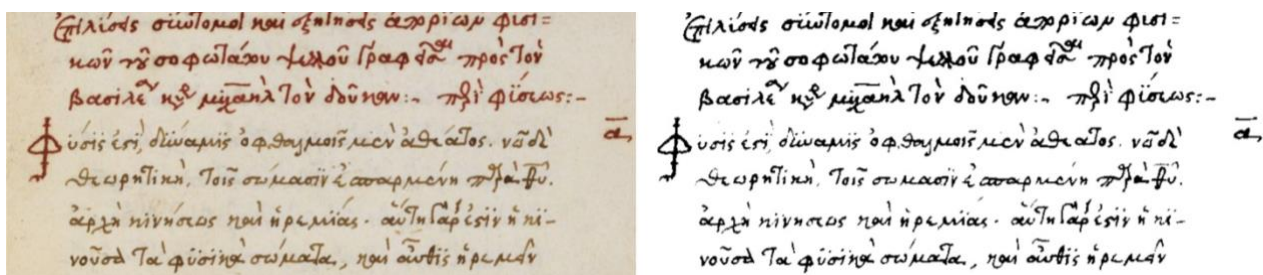 Ἐπιλίσεις σύντομοι καὶ ἐξηγήσεις ἀπορίων φισι=
κῶν τοῦ σοφωτάτου ψελλοῦ γραφεῖσαι πρὸς τὸν
βασιλέα μιχαὴλ τὸν δούκαν:- περὶ φύσεως:-
Φύσις ἐστὶ, δύναμις ὀφθαλμοῖς μὲν ἀθέατος. νῶ δὲ α
θεωρητικὴ, τοῖς σώμασιν ἐσπαρμένη π̅θ̅υ̅.
ἀρχὴ κινήσεως καὶ ἠρεμίας. αὕτη γάρ ἐστιν ἡ κι-
νοῦσα τὰ φύσικὰ σώματα, καὶ αὖθις ἠρεμεῖν
Ἐπιλίσεις σύντομοι καὶ ἐξηγήσεις ἀπορίων φισι=
κῶν τοῦ σοφωτάτου ψελλοῦ γραφεῖσαι πρὸς τὸν
βασιλέα μιχαὴλ τὸν δούκαν:- περὶ φύσεως:-
Φύσις ἐστὶ, δύναμις ὀφθαλμοῖς μὲν ἀθέατος. νῶ δὲ α
θεωρητικὴ, τοῖς σώμασιν ἐσπαρμένη π̅θ̅υ̅.
ἀρχὴ κινήσεως καὶ ἠρεμίας. αὕτη γάρ ἐστιν ἡ κι-
νοῦσα τὰ φύσικὰ σώματα, καὶ αὖθις ἠρεμεῖν